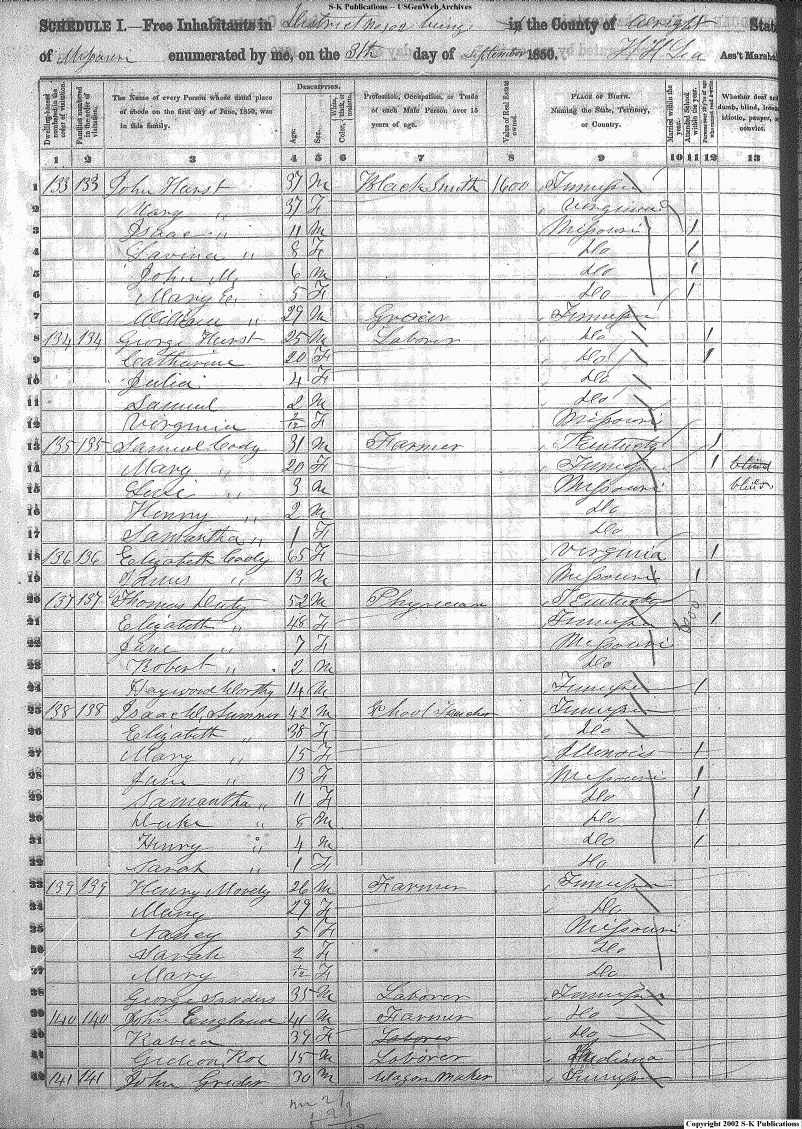 S-K Publications -- USGenWeb Archives
SCHEDULE I.—Free Inhabitants in District in the County of Wright State
of Missouri enumerated by me, on the 8th day of September 1850. H H Lea Ass't Marsh
Dwelling-houses numbered in the order of visitation.
Families numbered in the order of visitation.
The Name of every Person whose usual place of abode on the first day of June, 1850, was in this family.
Description.
Age.
Sex.
Color, White, black, or mulatto.
Profession, Occupation, or Trade of each Male Person over 15 years of age.
Value of Real Estate owned.
Place of Birth. Naming the State, Territory, or Country.
Married within the year.
Attended School within the year.
Persons over 20 y'rs of age who cannot read & write.
Whether deaf and dumb, blind, insane, idiotic, pauper, or convict.
1 2 3 4 5 6 7 8 9 10 11 12 13
1 133 133 John Hurst 37 M Black Smith 1600 Tennessee
2 Mary " 37 F Virginia
3 Isaac " 11 M Missouri 1
4 Lavina " 8 F Do 1
5 John M 6 M Do 1
6 Mary E. 5 F Do 1
7 William " 29 M Grocer Tennessee
8 134 134 George Hurst 25 M Laborer Do 1
9 Catharine 20 F Do 1
10 Julia 4 F Do
11 Samuel 2 M Do
12 Virginia 2/12 F Missouri
13 135 135 Samuel Cody 31 M Farmer Kentucky 1
14 Mary " 20 F Tennessee 1 blind
15 " 3 M Missouri blind
16 Henry " 2 M Do
17 Samantha " 1 F Do
18 136 136 Elizabeth Cody 65 F Virginia 1
19 " 13 M Missouri 1
20 137 137 Thomas Duty 52 M Physician Kentucky
21 Elizabeth " 48 F Tennessee 1
22 Jane " 7 F Missouri
23 Robert " 2 M Do
24 Haywood Worthy 14 M Tennessee 1
25 138 138 Isaac W Sumner 42 M School Teacher Tennessee
26 Elizabeth " 38 F Do
27 Mary " 15 F Illinois 1
28 Jane " 13 F Missouri 1
29 Samantha " 11 F Do 1
30 Duke " 8 M Do 1
31 Henry " 4 M Do 1
32 Sarah " 1 F Do
33 139 139 Henry Moody 26 M Farmer Tennessee
34 Mary 29 F Do
35 Nancy 5 F Missouri
36 Sarah 2 F Do
37 Mary 1/12 F Do
38 George Sanders 35 M Laborer Tennessee
39 140 140 John England 41 M Farmer Do
40 39 F Laborer Do
41 Gideon Roe 15 M Laborer Indiana
42 141 141 John Grider 30 M Wagon Maker Tennessee
Copyright 2002 S-K Publications